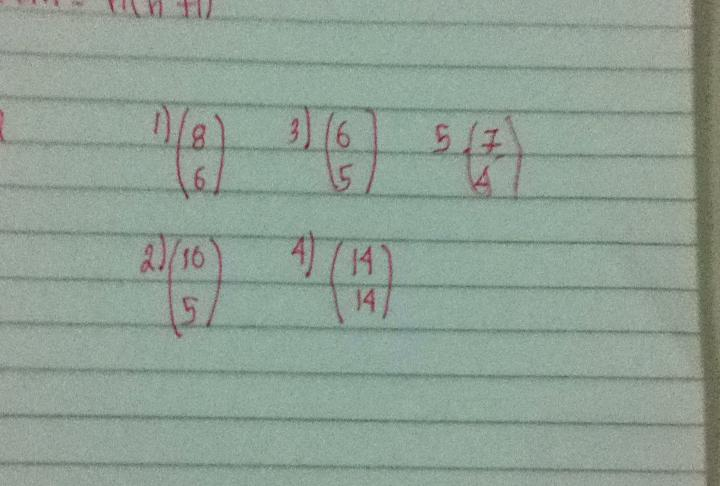 1) (8 6) 3) (6 5) 5 (7 4)
2) (10 5) 4) (14 14)